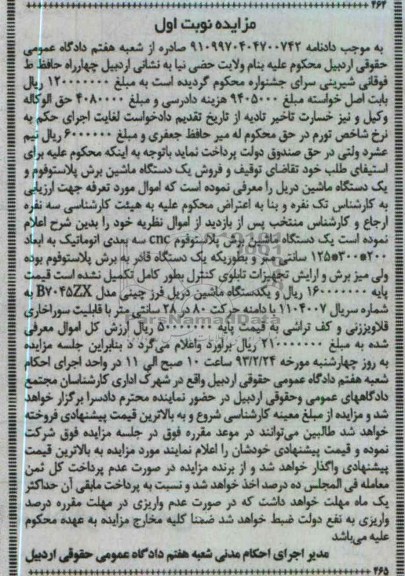 ۴۶۴
مزایده نوبت اول
به موجب دادنامه ۹۱۰۹۹۷۰۴۰۴۷۰۰۷۴۳ صادره از شعبه هفتم دادگاه عمومی
حقوقی اردبیل محکوم علیه بنام ولایت حضی نیا به نشانی اردبیل چهارراه حافظ ط
فوقانی شیرینی سرای جشنواره محکوم گردیده است به مبلغ ۱۲۰۰۰۰۰۰۰ ریال
بابت اصل خواسته مبلغ ۹۴۰۵۰۰۰ هزینه دادرسی و مبلغ ۴۰۸۰۰۰۰ حق الوکاله
وکیل و نیز خسارت تاخیر تادیه از تاریخ تقدیم دادخواست لغایت اجرای حکم به
نرخ شاخص تورم در حق محکوم له میر حافظ جعفری و مبلغ ۶۰۰۰۰۰۰ ریال نیم
عشرد ولتی در حق صندوق دولت پرداخت نماید باتوجه به اینکه محکوم علیه برای
استیفای طلب خود تقاضای توقیف و فروش یک دستگاه ماشین برش پلاستوفوم و
یک دستگاه ماشین دریل را معرفی نموده است که اموال مورد تعرفه جهت ارزیابی
به کارشناس تک نفره و بنا به اعتراض محکوم علیه به هیئت کارشناسی سه نفره
ارجاع و کارشناس منتخب پس از بازدید از اموال نظریه خود را بدین شرح اعلام
نموده است یک دستگاه ماشین برش پلاستوفوم cnc سه بعدی اتوماتیک به ابعاد
۲۰۰*۳۰۰*۱۲۵ سانتی متر و بطوریکه یک دستگاه قادر به برش پلاستوفوم بوده
ولی میز برش و ارایش تجهیزات تابلوی کنترل بطور کامل تکمیل نشده است قیمت
پایه ۱۶۰۰۰۰۰۰۰ ریال و یکدستگاه ماشین دریل فرز چینی مدل B۷۰۴۵ZX به
شماره سریال ۱۱۰۴۰۰۷ با دامنه حرکت ۸۰ در ۲۸ سانتی متر با قابلیت سوراخکاری
قلاویززنی و کف تراشی به قیمت پایه ۵۰۰۰۰۰۰۰ ریال ارزش کل اموال معرفی
شده به مبلغ ۲۱۰۰۰۰۰۰۰ ریال براورد واعلام می‌گرد د بنابراین جلسه مزایده
به روز چهارشنبه مورخه ۹۳/۲/۲۴ ساعت ۱۰ صبح الی ۱۱ در واحد اجرای احکام
شعبه هفتم دادگاه عمومی حقوقی اردبیل واقع در شهرک اداری کارشناسان مجتمع
دادگاههای عمومی وحقوقی اردبیل در حضور نماینده محترم دادسرا برگزار خواهد
شد و مزایده از مبلغ معینه کارشناسی شروع و به بالاترین قیمت پیشنهادی فروخته
خواهد شد طالبین می‌توانند در موعد مقرره فوق در جلسه مزایده فوق شرکت
نموده و قیمت پیشنهادی خودشان را اعلام نمایند مورد مزایده به بالاترین قیمت
پیشنهادی واگذار خواهد شد و از برنده مزایده در صورت عدم پرداخت کل ثمن
معامله فی المجلس ده درصد اخذ خواهد شد و نسبت به پرداخت مابقی آن حداکثر
یک ماه مهلت خواهد داشت که در صورت عدم واریزی در مهلت مقرره درصد
واریزی به نفع دولت ضبط خواهد شد ضمنا کلیه مخارج مزایده به عهده محکوم
علیه می‌باشد
مدیر اجرای احکام مدنی شعبه هفتم دادگاه عمومی حقوقی اردبیل
۴۶۵